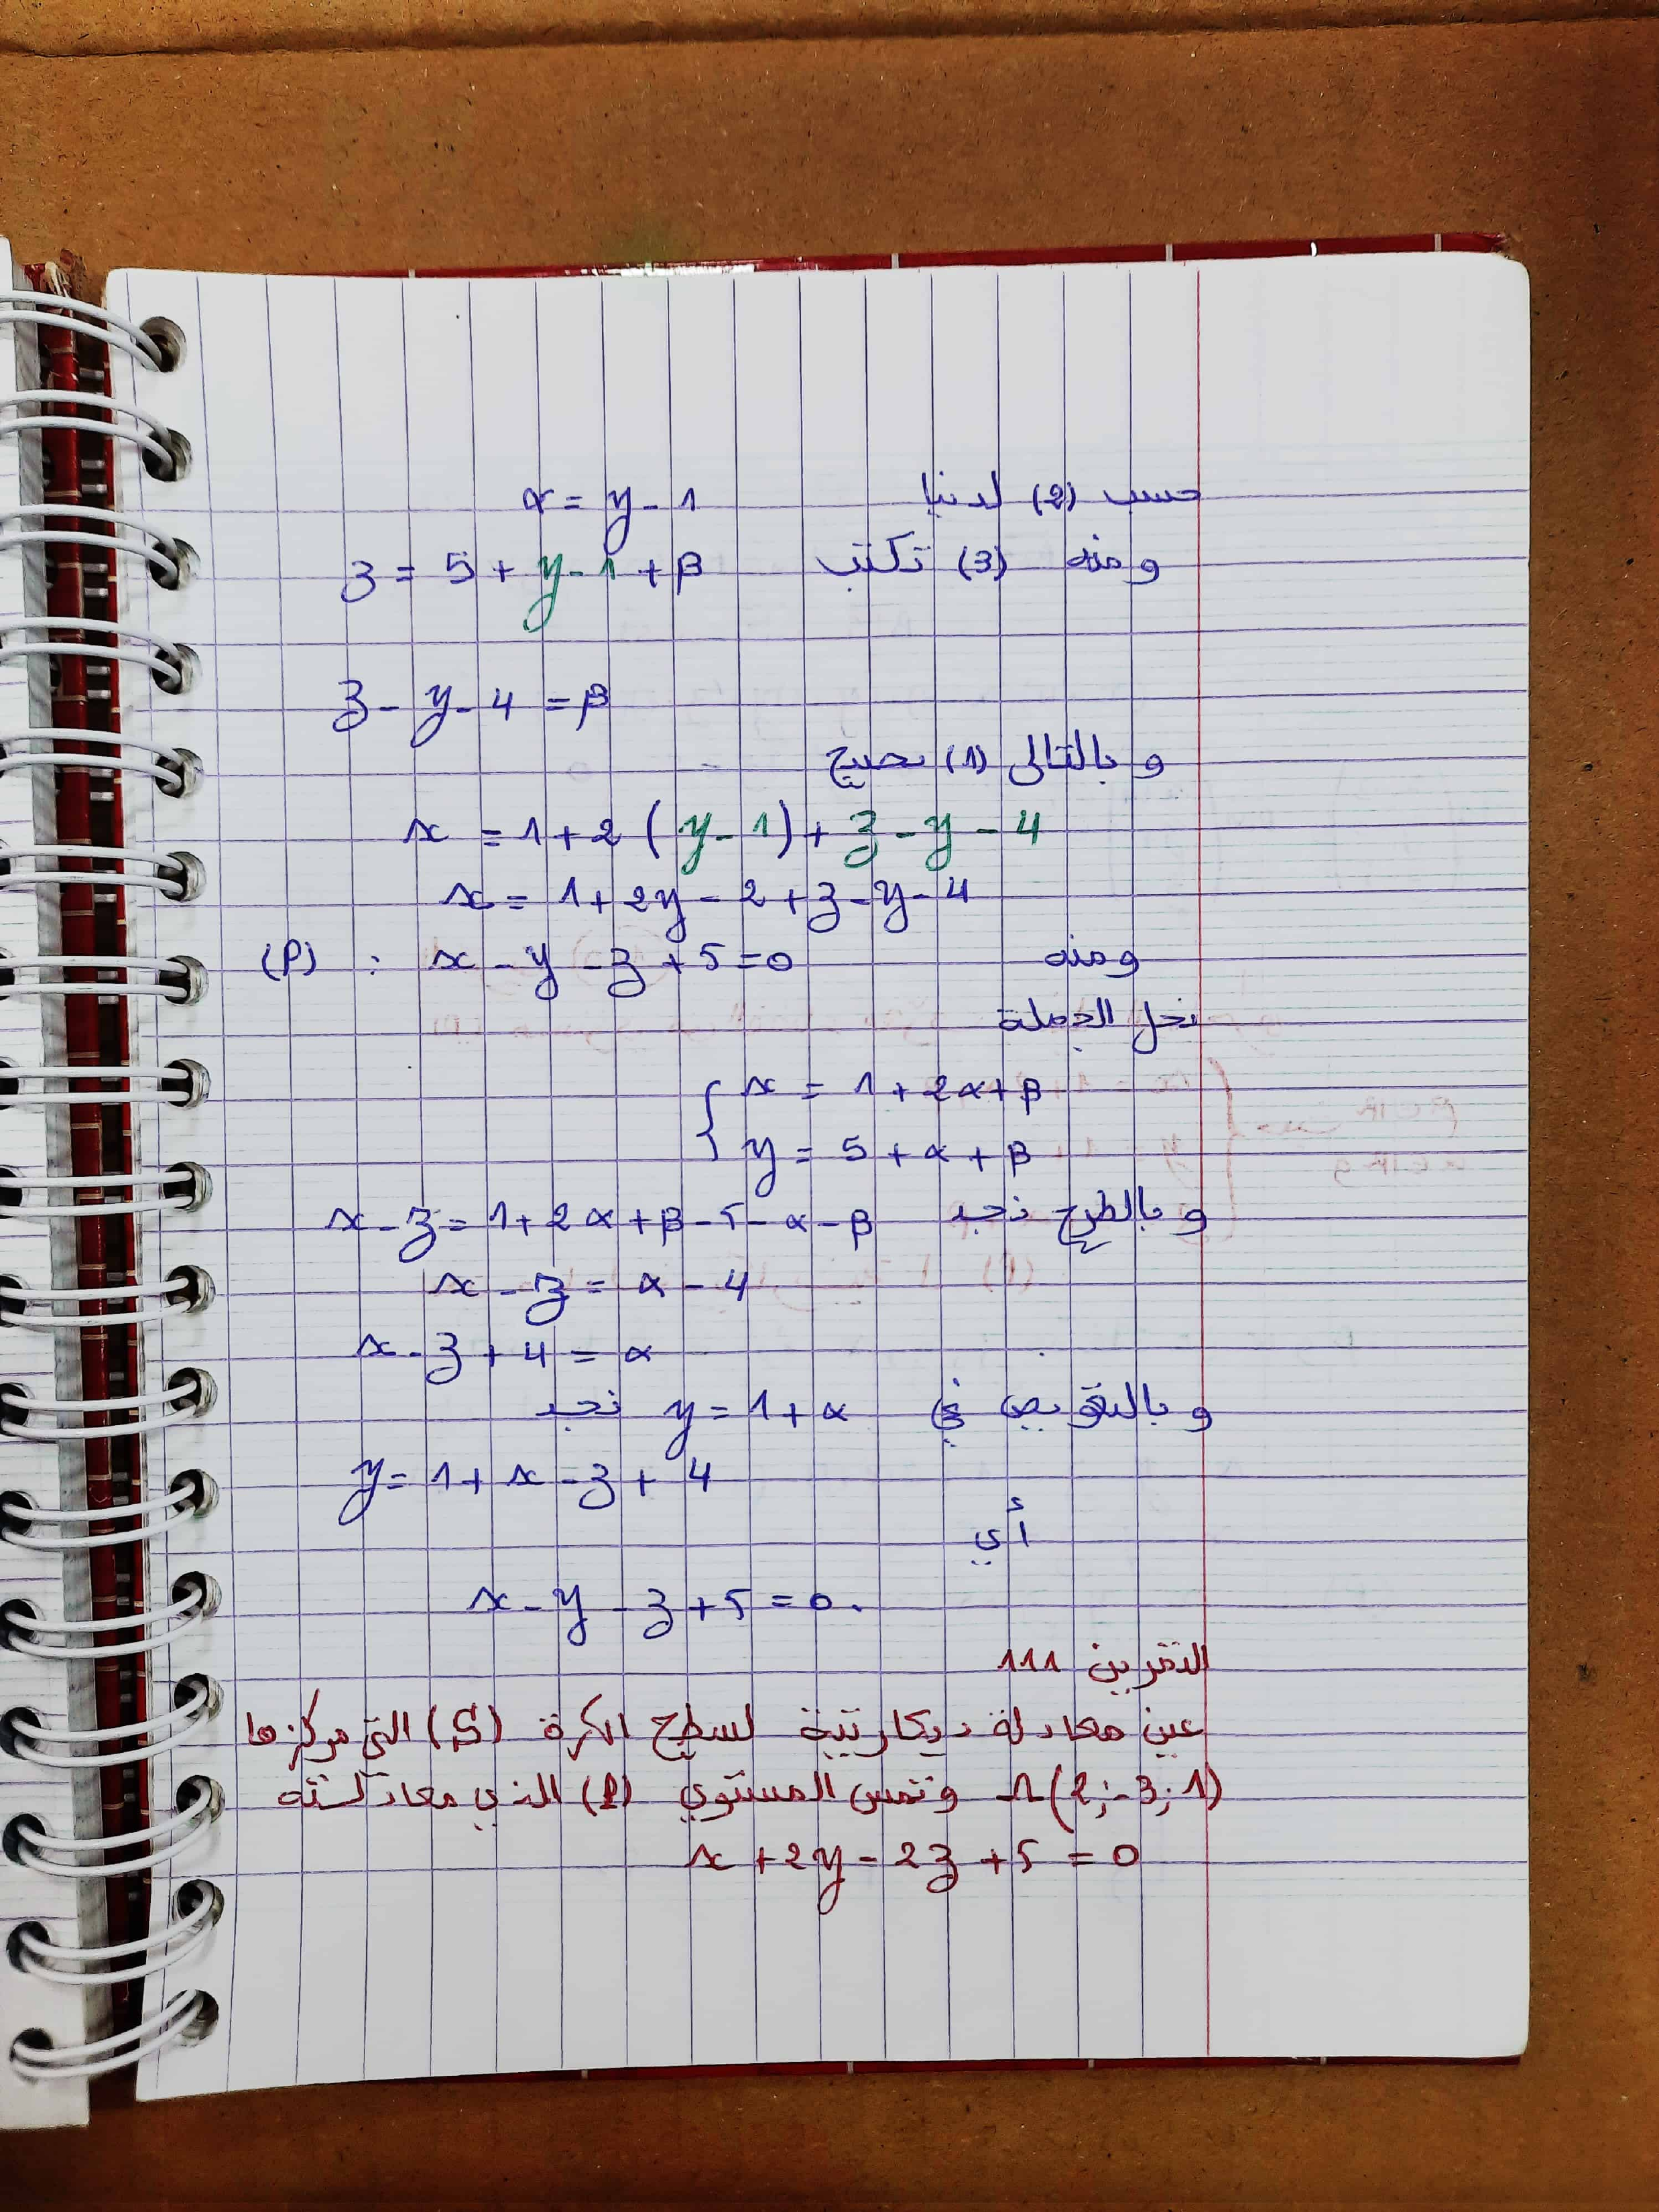 حسب (2) لدينا α = y - 1
ومنه (3) تكتب z = 5 + y - 1 + β
z - y - 4 = β
و بالتالي (1) تصبح
x = 1 + 2 (y - 1) + z - y - 4
x = 1 + 2y - 2 + z - y - 4
ومنه x - y - z + 5 = 0 : (P)
نحل الجملة
{ x = 1 + 2α + β
y = 5 + α + β
و بالطرح نجد x - z = 1 + 2α + β - 5 - α - β
x - z = α - 4
x - z + 4 = α
و بالتعويض في y = 1 + α نجد
y = 1 + x - z + 4
أي
x - y - z + 5 = 0.
التمرين 111
عين معادلة ديكارتية لسطح الكرة (S) التي مركزها
Ω(2; -3; 1) وتمس المستوي (P) الذي معادلته
x + 2y - 2z + 5 = 0